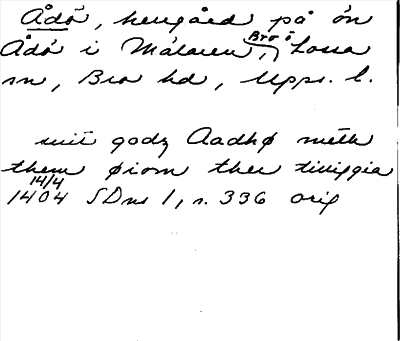 Ådö, herrgård på ön
Ådö i Mälaren, Bro o Lossa
sn, Bro hd, Upps. l.
mit godz Aadhø meth
them øiom ther tilliggia
14/4
1404 SDns 1, s. 336 orig